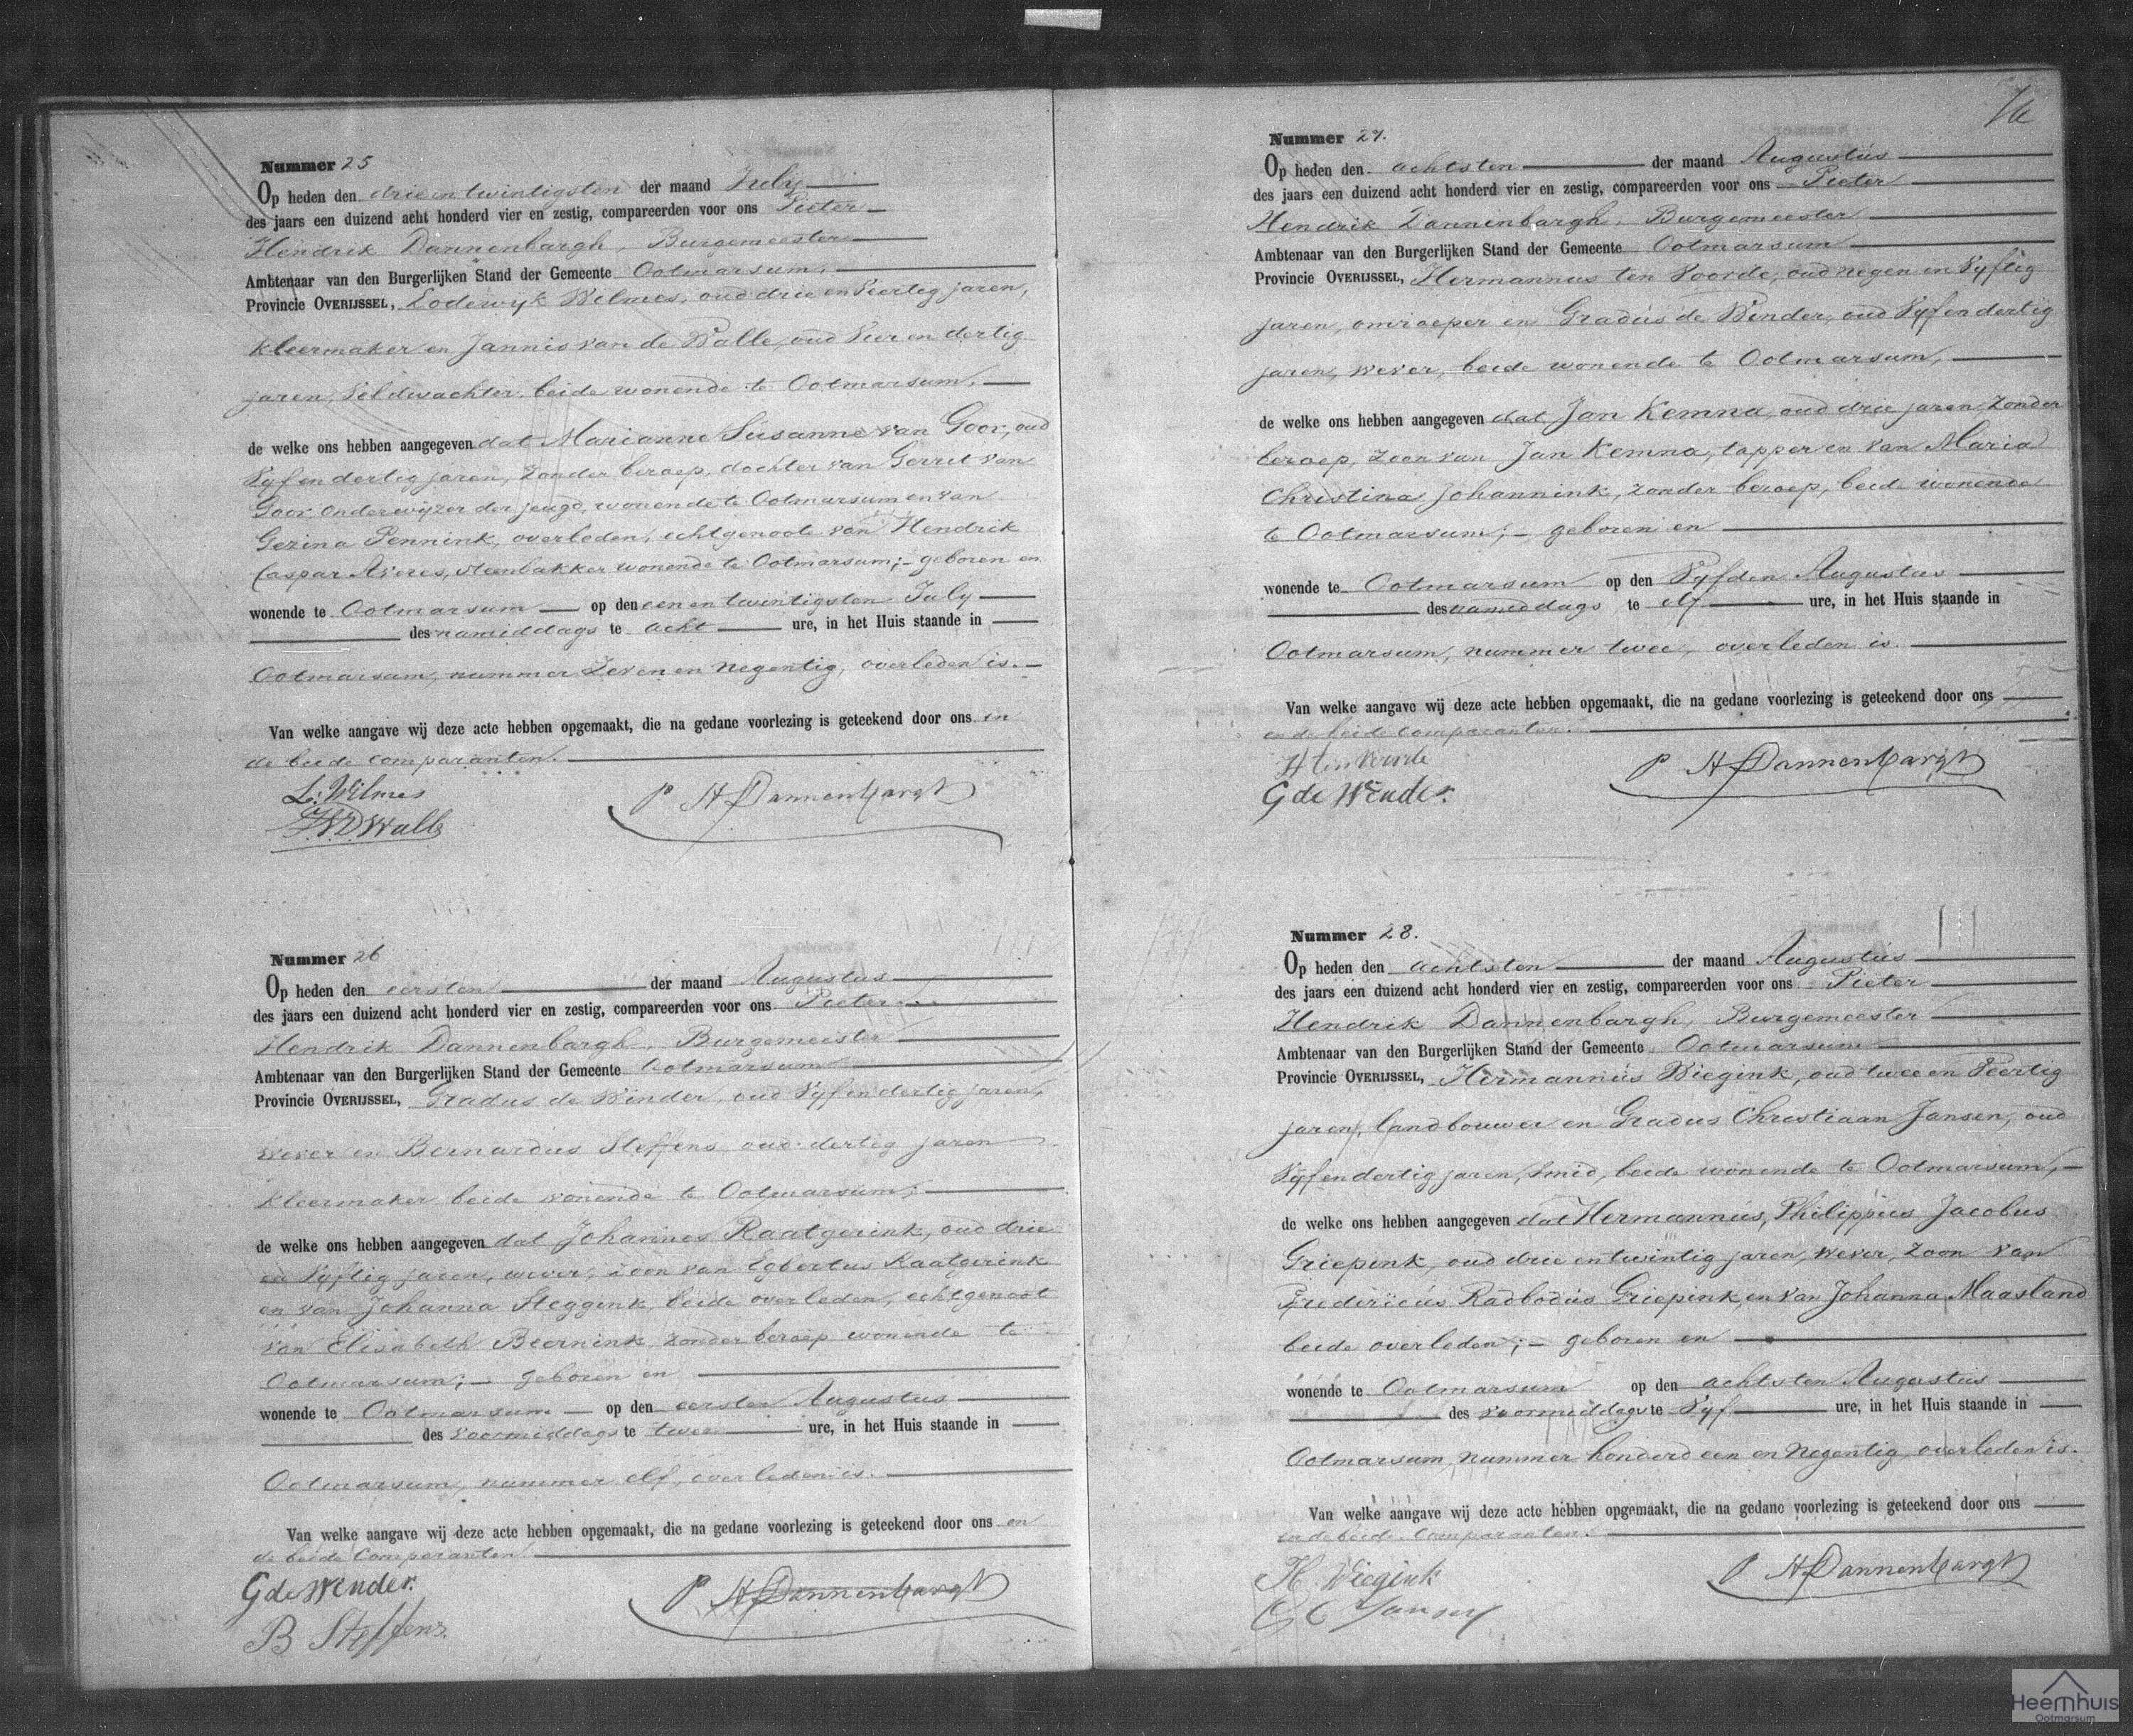 Nummer 25
Op heden den drie en twintigsten der maand July
des jaars een duizend acht honderd vier en zestig, compareerden voor ons Pieter
Hendrik Dannenbargh, Burgemeester
Ambtenaar van den Burgerlijken Stand der Gemeente Ootmarsum,
Provincie OVERIJSSEL, Lodewyk Wilmes, oud drie en Veertig jaren,
kleermaker en Jannis van de Walle, oud Vier en dertig
jaren, Veldwachter, beide wonende te Ootmarsum,
de welke ons hebben aangegeven dat Marianne Susanne van Goor, oud
Vyf en dertig jaren, zonder beroep, dochter van Gerret van
Goor Onderwyzer der jeugd, wonende te Ootmarsum en van
Gezina Pennink, overleden, echtgenoote van Hendrik
Caspar Averes, steenbakker wonende te Ootmarsum; geboren en
wonende te Ootmarsum op den een en twintigsten July
des namiddags te acht ure, in het Huis staande in
Ootmarsum, nummer Zeven en negentig, overleden is.
Van welke aangave wij deze acte hebben opgemaakt, die na gedane voorlezing is geteekend door ons en
de beide comparanten.
L. Wilmes
J.V.D. Walle
P H Dannenbargh
Nummer 26
Op heden den eersten der maand Augustus
des jaars een duizend acht honderd vier en zestig, compareerden voor ons Pieter
Hendrik Dannenbargh, Burgemeester
Ambtenaar van den Burgerlijken Stand der Gemeente Ootmarsum
Provincie OVERIJSSEL, Gradus de Winder, oud Vyf en dertig jaren,
wever en Bernardus Steffens, oud dertig jaren
kleermaker beide wonende te Ootmarsum,
de welke ons hebben aangegeven dat Johannes Raatgerink, oud drie
en Vyftig jaren, wever, zoon van Egbertus Raatgerink
en van Johanna Steggink, beide overleden, echtgenoot
van Elisabeth Beernink, zonder beroep wonende te
Ootmarsum; geboren en
wonende te Ootmarsum op den eersten Augustus
des voormiddags te twee ure, in het Huis staande in
Ootmarsum, nummer elf, overleden is.
Van welke aangave wij deze acte hebben opgemaakt, die na gedane voorlezing is geteekend door ons en
de beide Comparanten
G de Wender.
B Steffens.
P H Dannenbargh
Nummer 27.
Op heden den achtsten der maand Augustus
des jaars een duizend acht honderd vier en zestig, compareerden voor ons Pieter
Hendrik Dannenbargh, Burgemeester
Ambtenaar van den Burgerlijken Stand der Gemeente Ootmarsum
Provincie OVERIJSSEL, Hermannus ten Voorde, oud negen en Vyftig
jaren, omroeper en Gradus de Winder, oud Vyf en dertig
jaren, wever, beide wonende te Ootmarsum,
de welke ons hebben aangegeven dat Jan Kemna, oud drie jaren, zonder
beroep, zoon van Jan Kemna, tapper en van Maria
Christina Johannink, zonder beroep, beide wonende
te Ootmarsum; geboren en
wonende te Ootmarsum op den Vyfden Augustus
des namiddags te elf ure, in het Huis staande in
Ootmarsum, nummer twee, overleden is.
Van welke aangave wij deze acte hebben opgemaakt, die na gedane voorlezing is geteekend door ons
en de beide comparanten.
H ten Voorde
G de Wender.
P H Dannenbargh
Nummer 28.
Op heden den achtsten der maand Augustus
des jaars een duizend acht honderd vier en zestig, compareerden voor ons Pieter
Hendrik Dannenbargh, Burgemeester
Ambtenaar van den Burgerlijken Stand der Gemeente Ootmarsum
Provincie OVERIJSSEL, Hermannus Wiegink, oud twee en Veertig
jaren, landbouwer en Gradus Christiaan Jansen, oud
Vyf en dertig jaren, smid, beide wonende te Ootmarsum,
de welke ons hebben aangegeven dat Hermannus, Philippus Jacobus
Griepink, oud drie en twintig jaren, wever, zoon van
Fredericus Radbodus Griepink, en van Johanna Maasland
beide overleden; geboren en
wonende te Ootmarsum op den achtsten Augustus
des voormiddags te Vyf ure, in het Huis staande in
Ootmarsum, nummer honderd een en negentig, overleden is.
Van welke aangave wij deze acte hebben opgemaakt, die na gedane voorlezing is geteekend door ons
en de beide Comparanten.
H. Wiegink
G C Jansen
P H Dannenbargh
Heemhuis
Ootmarsum